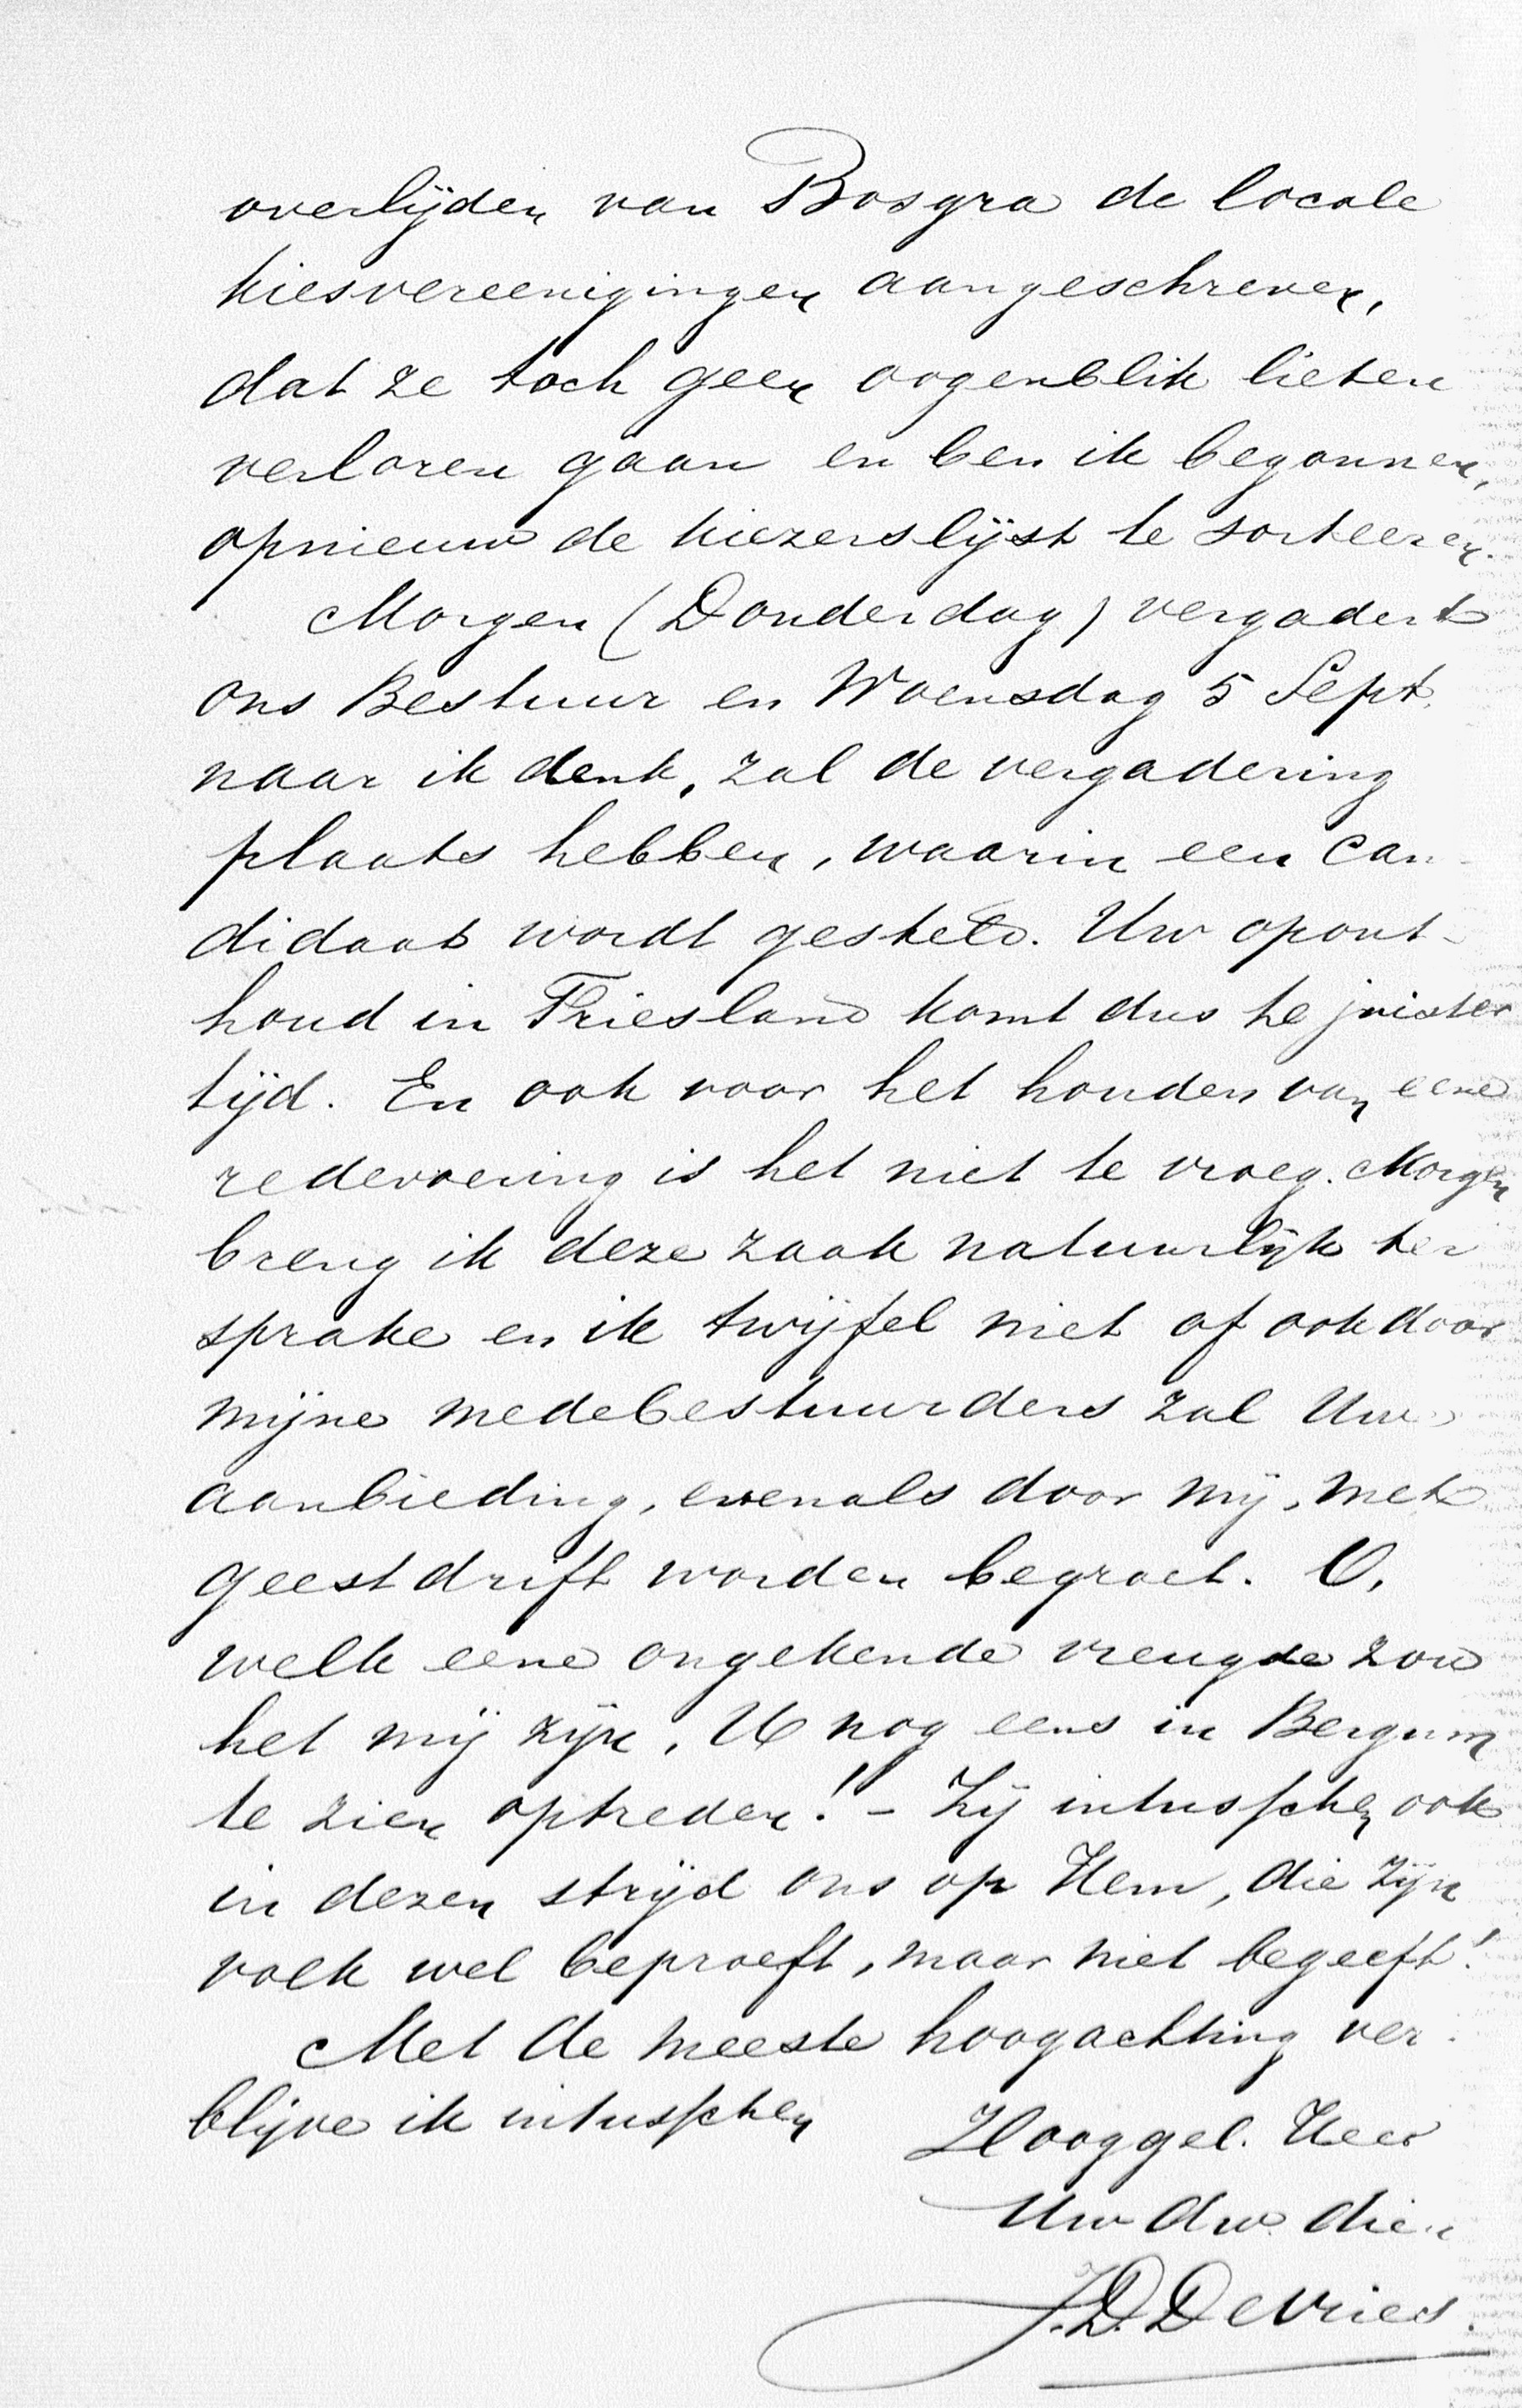 overlijden van Bosgra de locale
kiesvereenigingen aangeschreven,
dat ze toch geen oogenblik lieten
verloren gaan en ben ik begonnen,
opnieuw de kiezerslijst te sorteeren.
Morgen (Donderdag) vergadert
ons Bestuur en Woensdag 5 Sept.
naar ik denk, zal de vergadering
plaats hebben, waarin een can-
didaat wordt gesteld. Uw opont-
houd in Friesland komt dus te juister
tijd. En ook voor het houden van eene
redevoering is het niet te vroeg. Morgen
breng ik deze zaak natuurlijk ter
sprake en ik twijfel niet of ook door
mijne medebestuurders zal Uwe
aanbieding, evenals door mij, met
geestdrift worden begroet. O,
welk eene ongekende vreugde zou
het mij zijn, U nog eens in Bergum
te zien optreden! - Zij intusschen ook
in dezen strijd ons op Hem, die Zijn
volk wel beproeft, maar niet begeeft!
Met de meeste hoogachting ver-
blijve ik intusschen
Hooggel. Heer
Uw dw. dien
J.D. De Vries.